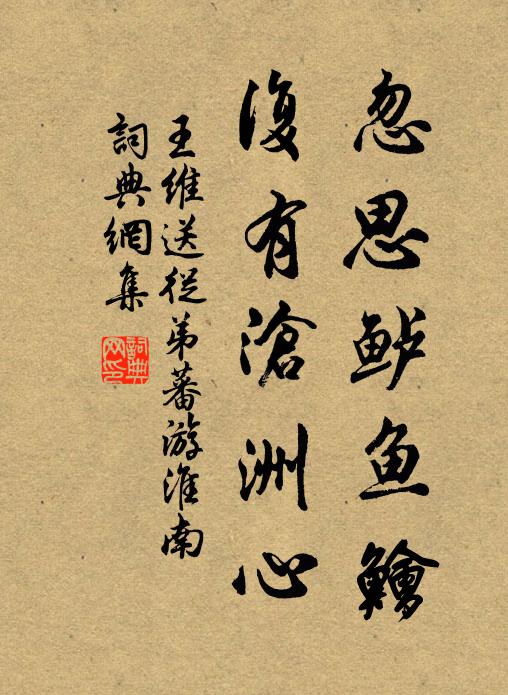 忽思鲈鱼鱠
復有滄洲心
王維送從弟蕃游淮南
詞典網集
詞典网印